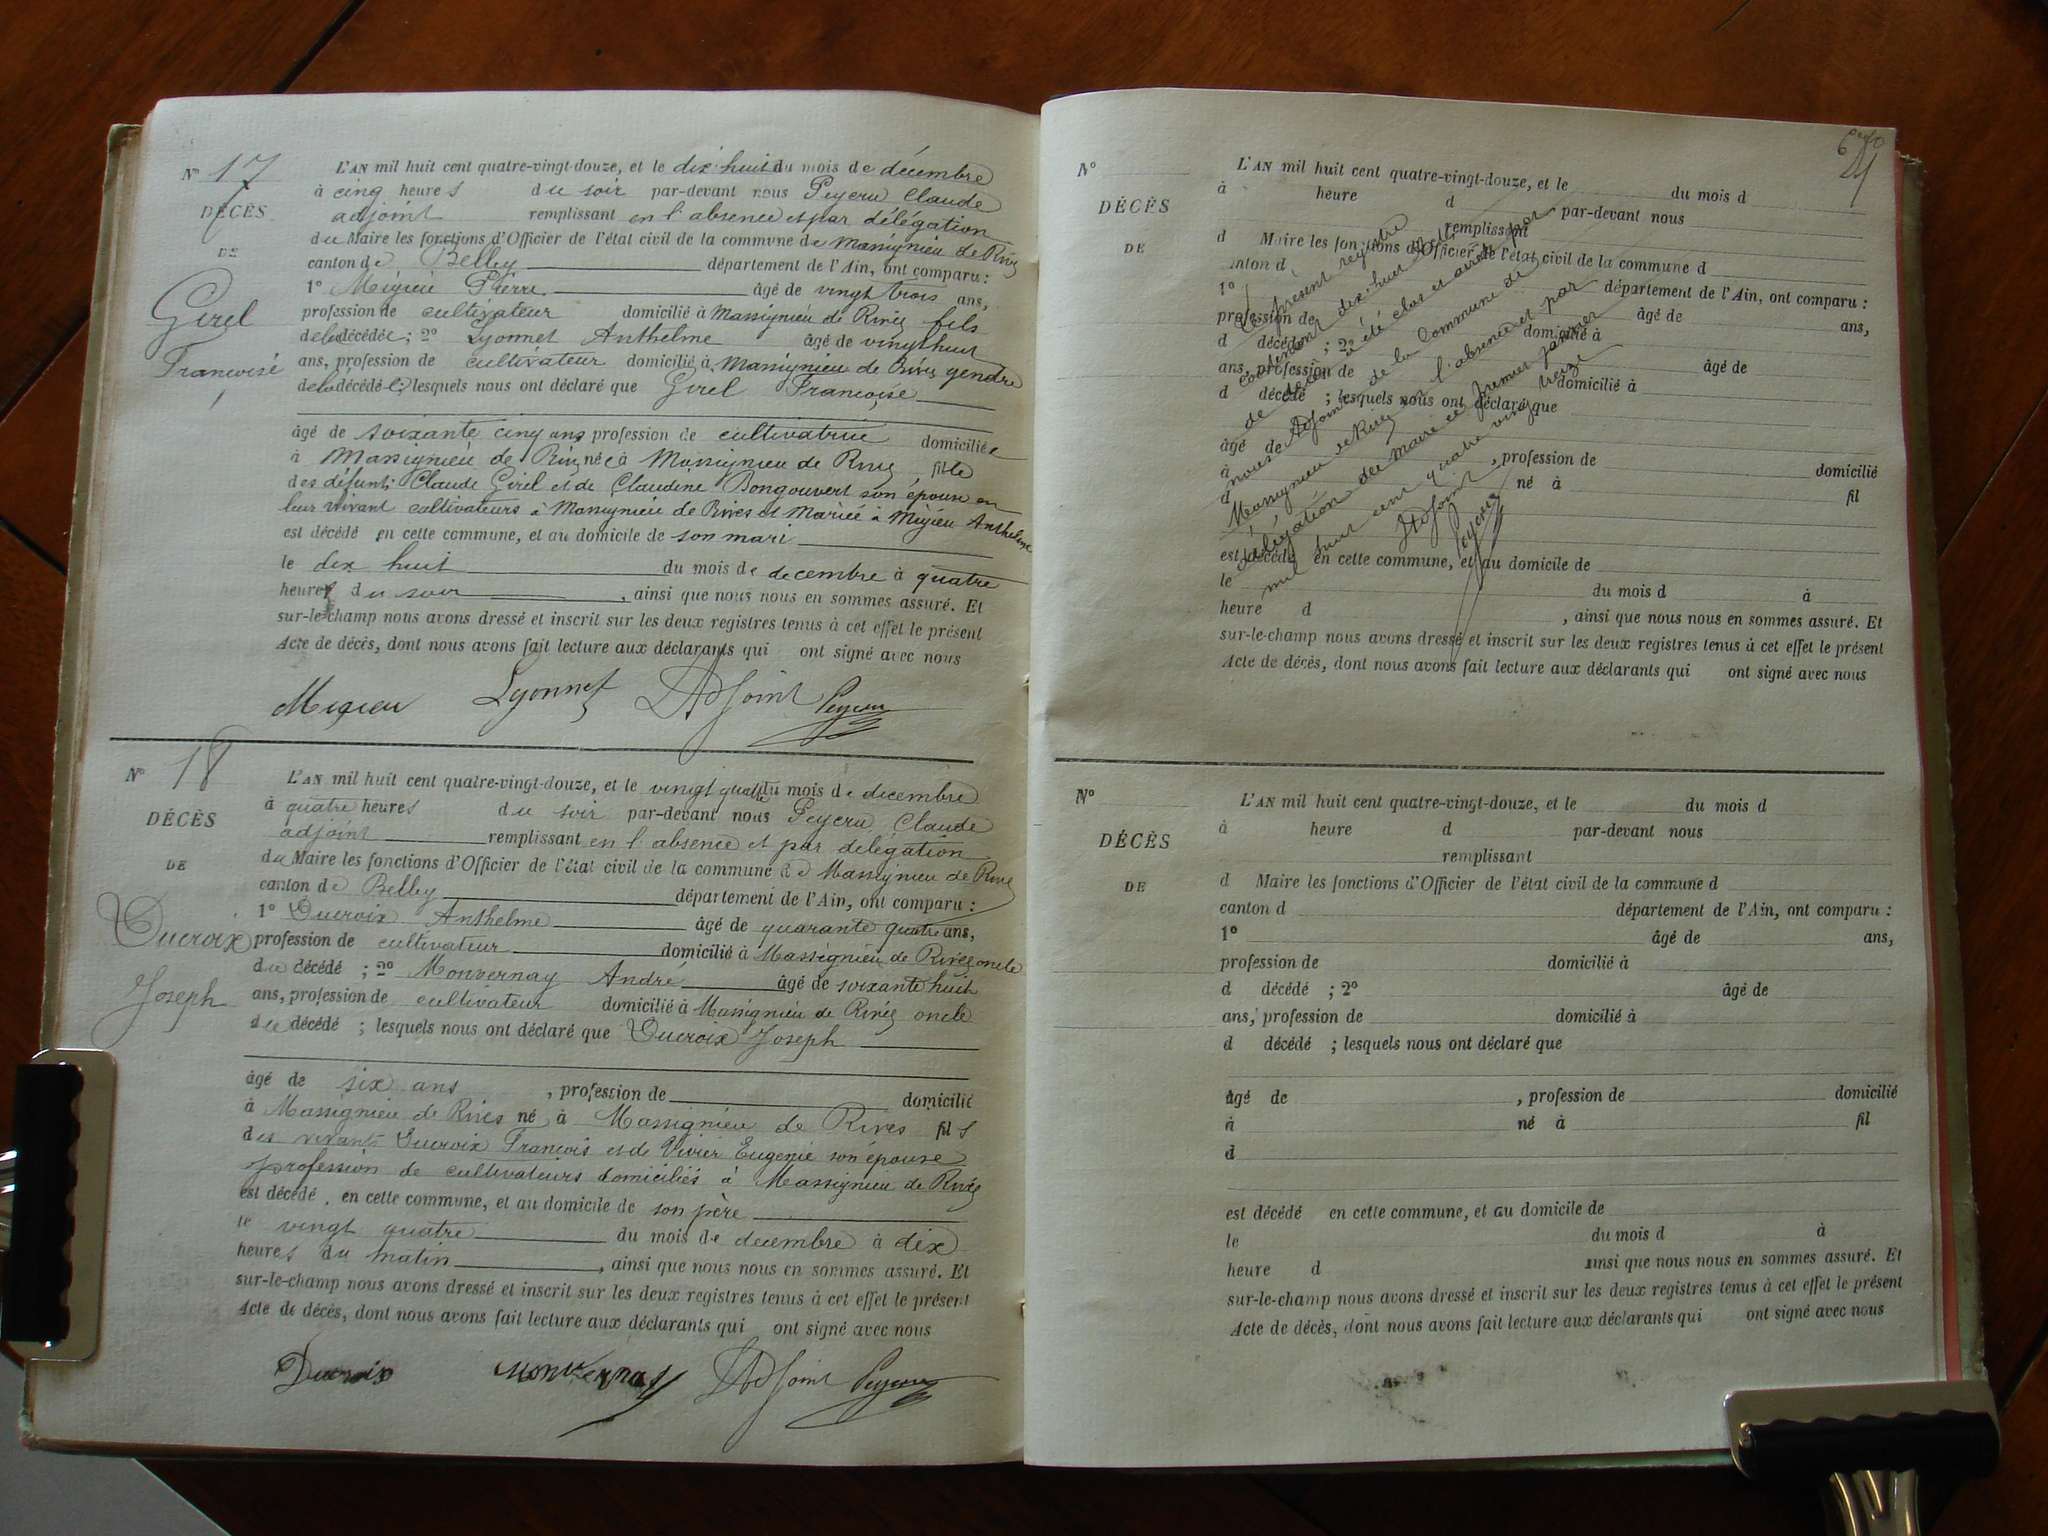 N° 17
DÉCÈS
DE
Girel
Françoise
L'AN mil huit cent quatre-vingt-douze, et le dix huit du mois de décembre
à cinq heures du soir par-devant nous Peycru Claude
adjoint remplissant en l'absence et par délégation
du Maire les fonctions d'Officier de l'état civil de la commune de Massignieu de Rives
canton de Belley département de l'Ain, ont comparu :
1° Migieu Pierre âgé de vingt trois ans,
profession de cultivateur domicilié à Massignieu de Rives fils
de la décédée ; 2° Lyonnet Anthelme âgé de vingt huit
ans, profession de cultivateur domicilié à Massignieu de Rives gendre
de la décédée ; lesquels nous ont déclaré que Girel Françoise
âgé de soixante cinq ans profession de cultivatrice domiciliée
à Massignieu de Rives née à Massignieu de Rives fille
des défunts Claude Girel et de Claudine Bongouvert son épouse en
leur vivant cultivateurs à Massignieu de Rives et Mariée à Migieu Anthelme
est décédé en cette commune, et au domicile de son mari
le dix huit du mois de decembre à quatre
heures du soir , ainsi que nous nous en sommes assuré. Et
sur-le-champ nous avons dressé et inscrit sur les deux registres tenus à cet effet le présent
Acte de décès, dont nous avons fait lecture aux déclarants qui ont signé avec nous
Migieu Lyonnet L'Adjoint Peycru
N° 18
DÉCÈS
DE
Ducroix
Joseph
L'AN mil huit cent quatre-vingt-douze, et le vingt quatre du mois de decembre
à quatre heures du soir par-devant nous Peycru Claude
adjoint remplissant en l'absence et par délégation
du Maire les fonctions d'Officier de l'état civil de la commune de Massignieu de Rives
canton de Belley département de l'Ain, ont comparu :
1° Ducroix Anthelme âgé de quarante quatre ans,
profession de cultivateur domicilié à Massignieu de Rives oncle
du décédé ; 2° Monvernay André âgé de soixante huit
ans, profession de cultivateur domicilié à Massignieu de Rives oncle
du décédé ; lesquels nous ont déclaré que Ducroix Joseph
âgé de six ans , profession de domicilié
à Massignieu de Rives né à Massignieu de Rives fils
des vivants Ducroix François et de Vivier Eugenie son épouse
profession de cultivateurs domiciliés à Massignieu de Rives
est décédé en cette commune, et au domicile de son père
le vingt quatre du mois de decembre à dix
heures du matin , ainsi que nous nous en sommes assuré. Et
sur-le-champ nous avons dressé et inscrit sur les deux registres tenus à cet effet le présent
Acte de décès, dont nous avons fait lecture aux déclarants qui ont signé avec nous
Ducroix Monvernay L'Adjoint Peycru
N°
DÉCÈS
DE
L'AN mil huit cent quatre-vingt-douze, et le du mois d
à heure d par-devant nous
remplissant
d Maire les fonctions d'Officier de l'état civil de la commune d
canton d département de l'Ain, ont comparu :
1° âgé de ans,
profession de domicilié à
d décédé ; 2° âgé de
ans, profession de domicilié à
d décédé ; lesquels nous ont déclaré que
âgé de , profession de domicilié
à né à fil
d
est décédé en cette commune, et au domicile de
le du mois d à
heure d , ainsi que nous nous en sommes assuré. Et
sur-le-champ nous avons dressé et inscrit sur les deux registres tenus à cet effet le présent
Acte de décès, dont nous avons fait lecture aux déclarants qui ont signé avec nous
Le présent registre
contenant dix-huit actes
de décès a été clos et arrêté par
nous Adjoint de la Commune de
Massignieu de Rives en l'absence et par
délégation du Maire ce premier janvier
mil huit cent quatre vingt treize
L'Adjoint
Peycru
N°
DÉCÈS
DE
L'AN mil huit cent quatre-vingt-douze, et le du mois d
à heure d par-devant nous
remplissant
d Maire les fonctions d'Officier de l'état civil de la commune d
canton d département de l'Ain, ont comparu :
1° âgé de ans,
profession de domicilié à
d décédé ; 2° âgé de
ans, profession de domicilié à
d décédé ; lesquels nous ont déclaré que
âgé de , profession de domicilié
à né à fil
d
est décédé en cette commune, et au domicile de
le du mois d à
heure d ainsi que nous nous en sommes assuré. Et
sur-le-champ nous avons dressé et inscrit sur les deux registres tenus à cet effet le présent
Acte de décès, dont nous avons fait lecture aux déclarants qui ont signé avec nous